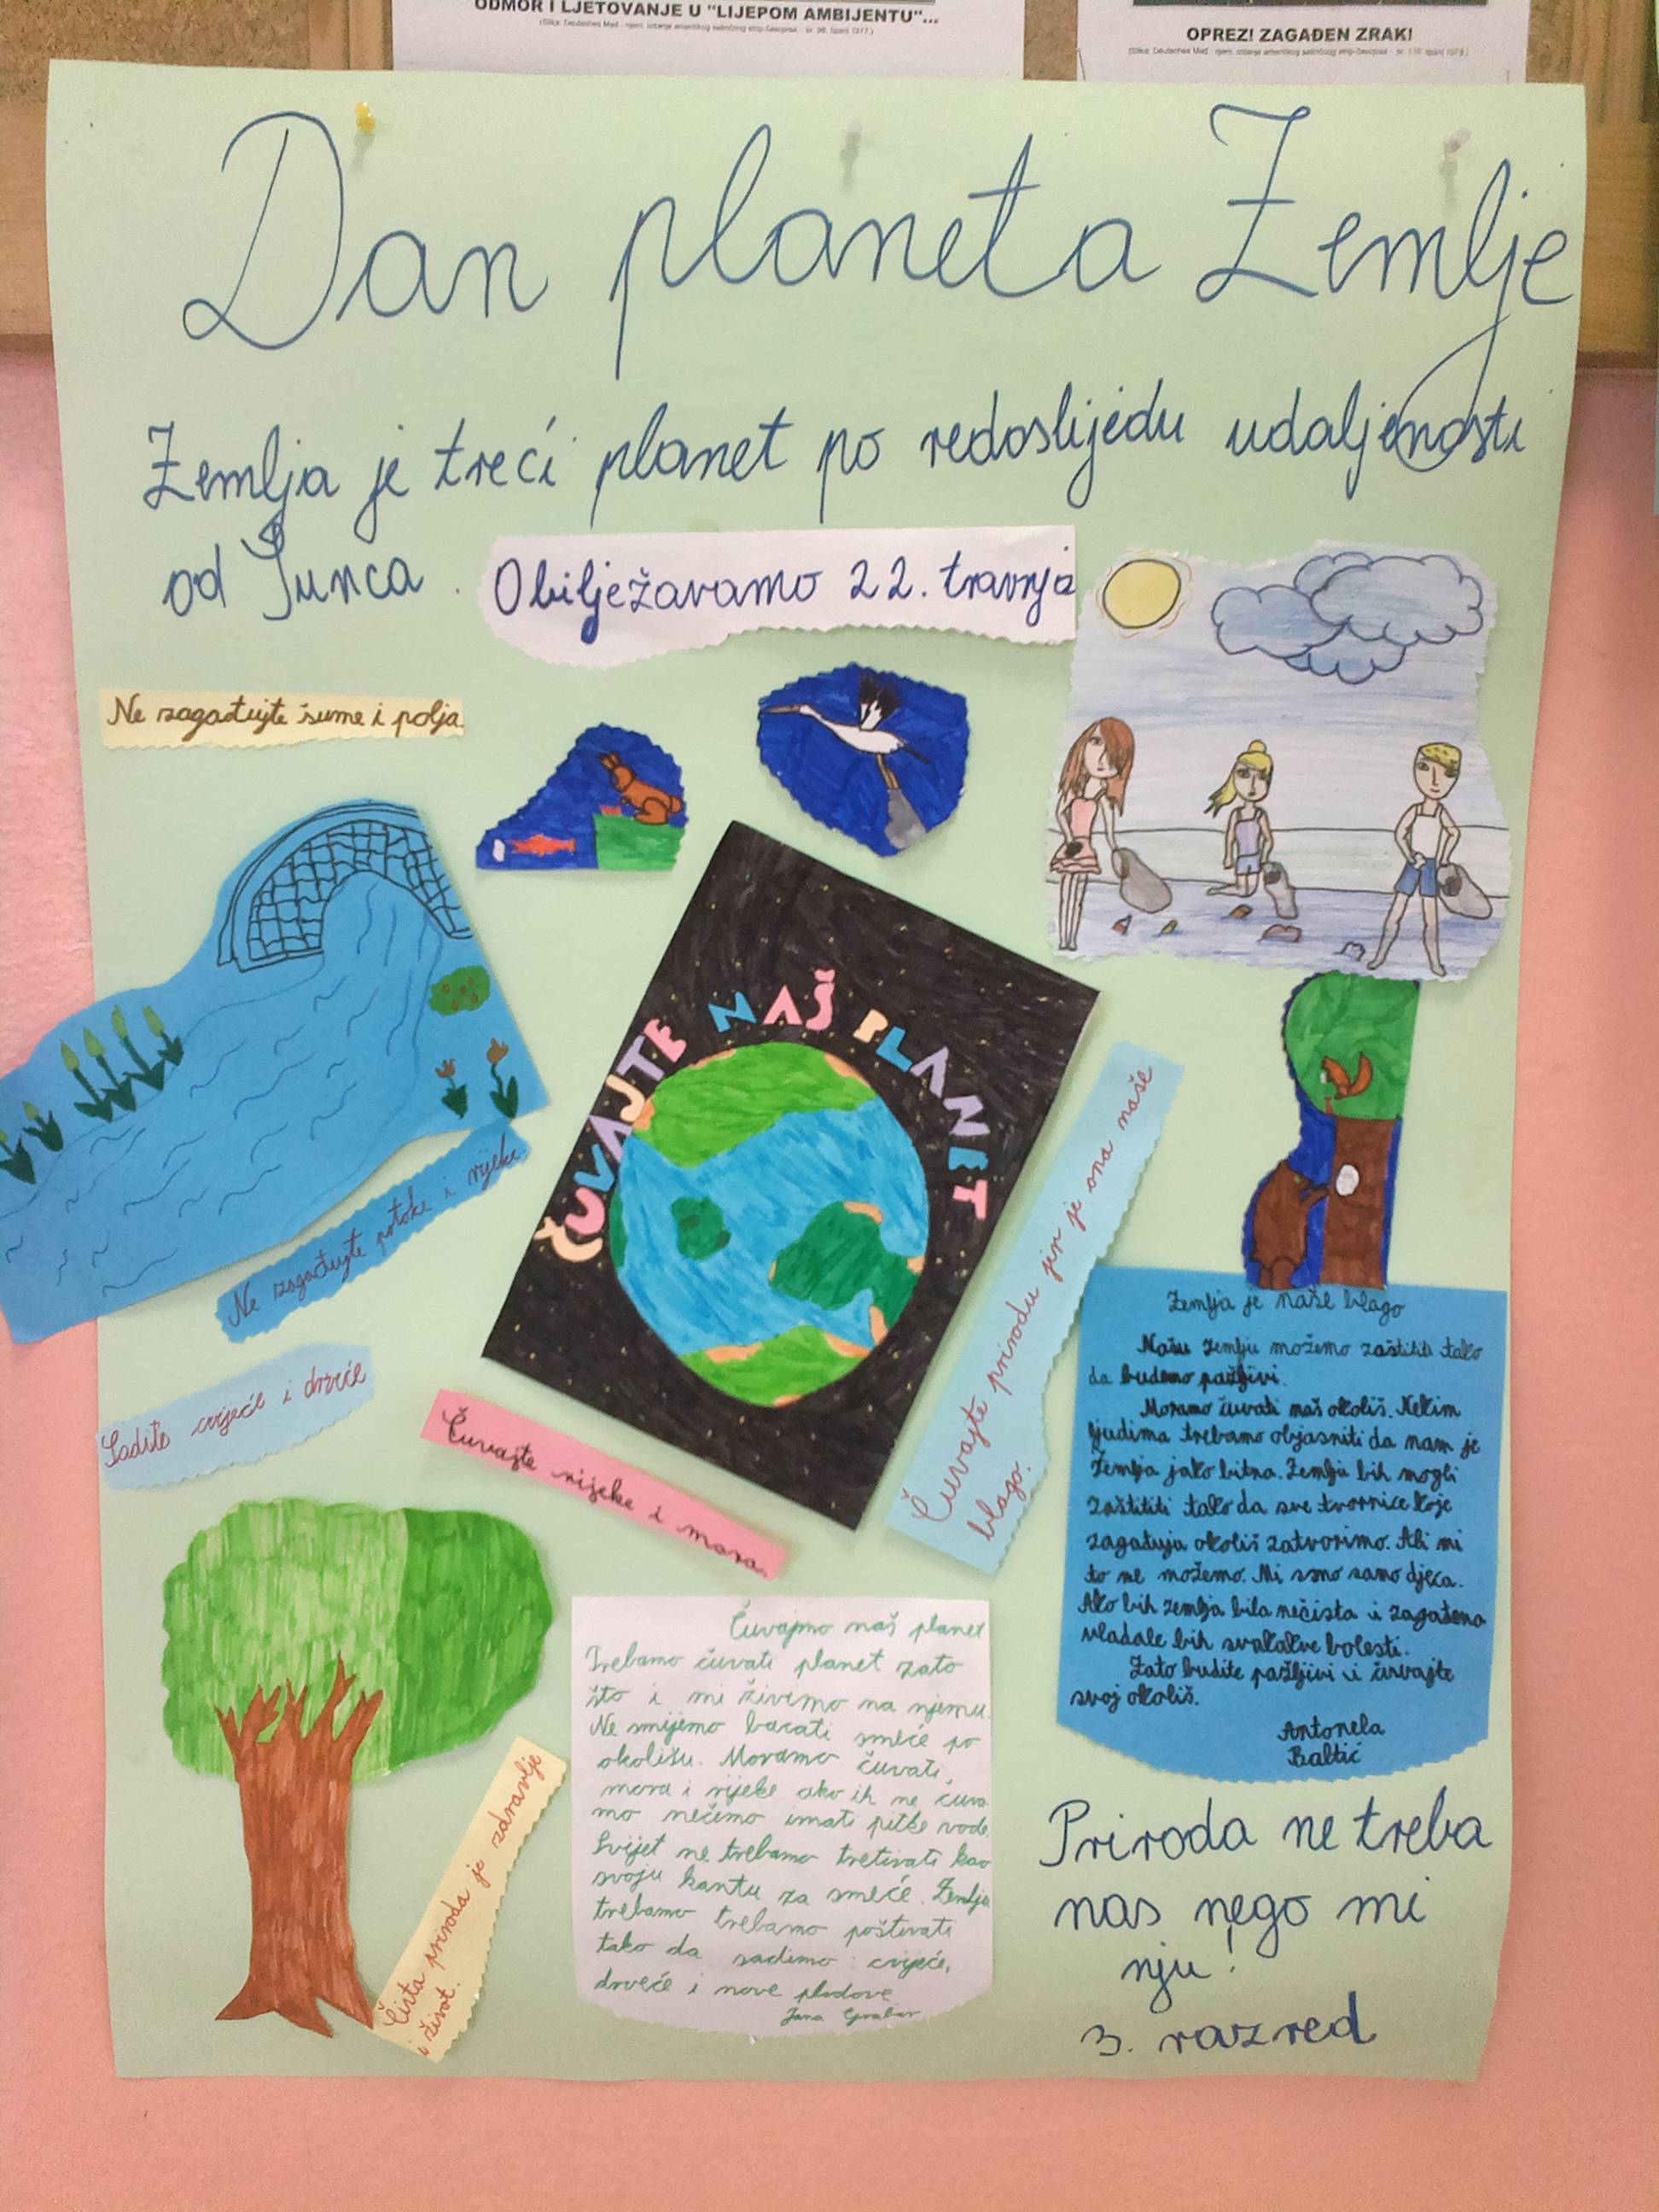 ODMOR I LJETOVANJE U "LIJEPOM AMBIJENTU"...
OPREZ! ZAGAĐEN ZRAK!
Dan planeta Zemlje
Zemlja je treći planet po redoslijedu udaljenosti
od Sunca.
Obilježavamo 22. travnja
Ne zagađujte šume i polja.
ČUVAJTE NAŠ PLANET
Ne zagađujte potoke i rijeke.
Sadite cvijeće i drveće
Čuvajte rijeke i mora.
Čuvajte prirodu jer je ona naše
blago.
Čista priroda je zdravlje
i život.
Čuvajmo naš planet
Trebamo čuvati planet zato
što i mi živimo na njemu.
Ne smijemo bacati smeće po
okolišu. Moramo čuvati,
mora i rijeke ako ih ne čuva-
mo nečemo imati pitke vode.
Svijet ne trebamo tretirati kao
svoju kantu za smeće. Zemlju
trebamo trebamo poštivati
tako da sadimo: cvijeće,
drveće i nove plodove
Jana
Zemlja je naše blago
Našu zemlju možemo zaštititi tako
da budemo pažljivi.
Moramo čuvati naš okoliš. Nekim
ljudima trebamo objasniti da nam je
Zemlja jako bitna. Zemlju bih mogli
zaštititi tako da sve tvornice koje
zagađuju okoliš zatvorimo. Ali mi
to ne možemo. Mi smo samo djeca.
Ako bih zemlja bila nečista i zagađena
vladale bih svakakve bolesti.
Zato budite pažljivi i čuvajte
svoj okoliš.
Antonela
Baltić
Priroda ne treba
nas nego mi
nju!
3. razred